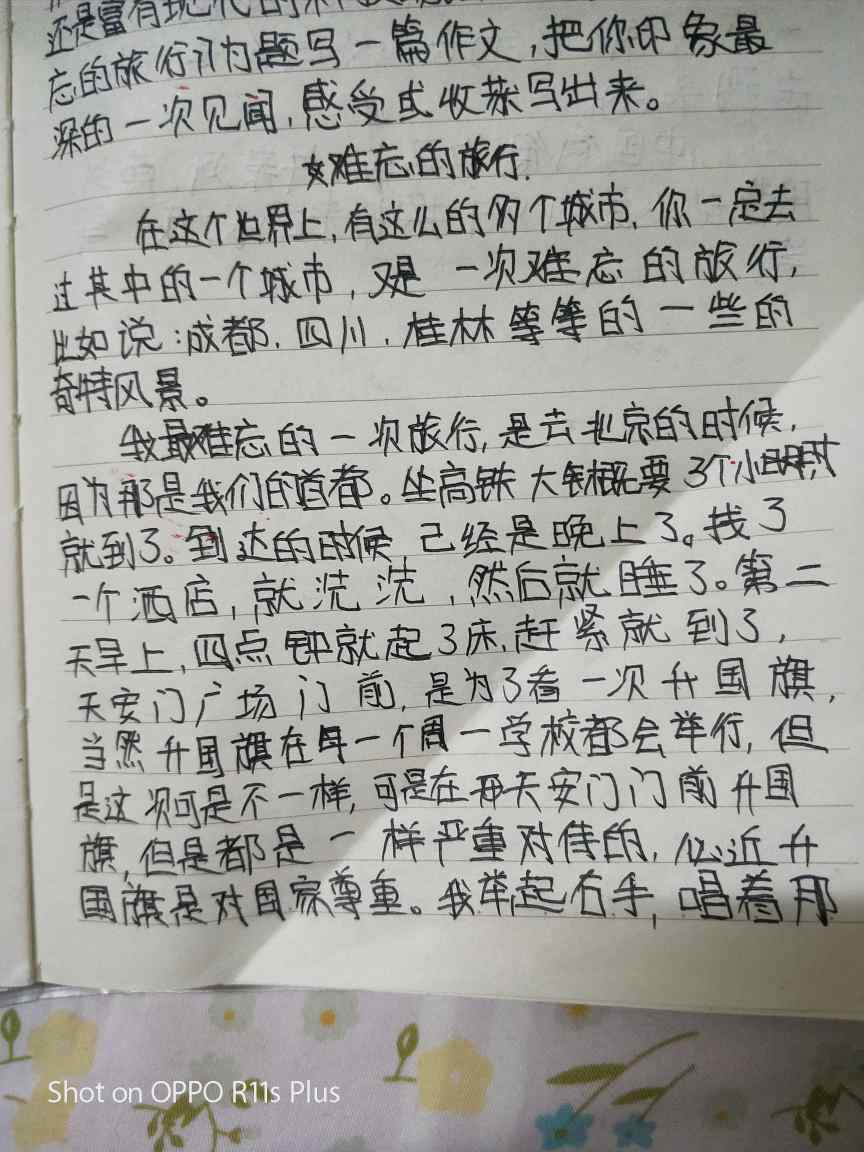 还是富有现代的
忘的旅行为题写一篇作文,把你印象最
深的一次见闻,感受或收获写出来。
难忘的旅行.
在这个世界上,有这么的多个城市,你一定去
过其中的一个城市,又是一次难忘的旅行,
比如说:成都.四川.桂林等等的一些的
奇特风景。
我最难忘的一次旅行,是去北京的时候,
因为那是我们的首都。坐高铁大概要3个小时
就到了。到达的时候,已经是晚上了。找了
一个酒店,就洗洗,然后就睡了。第二
天早上,四点钟就起了床.赶紧就到了,
天安门广场门前,是为了看一次升国旗,
当然升国旗在每一个周一学校都会举行,但
是这次可是不一样,可是在天安门门前升国
旗,但是都是一样严重对待的,必近升
国旗是对国家尊重。我举起右手,唱着那
Shot on OPPO R11s Plus